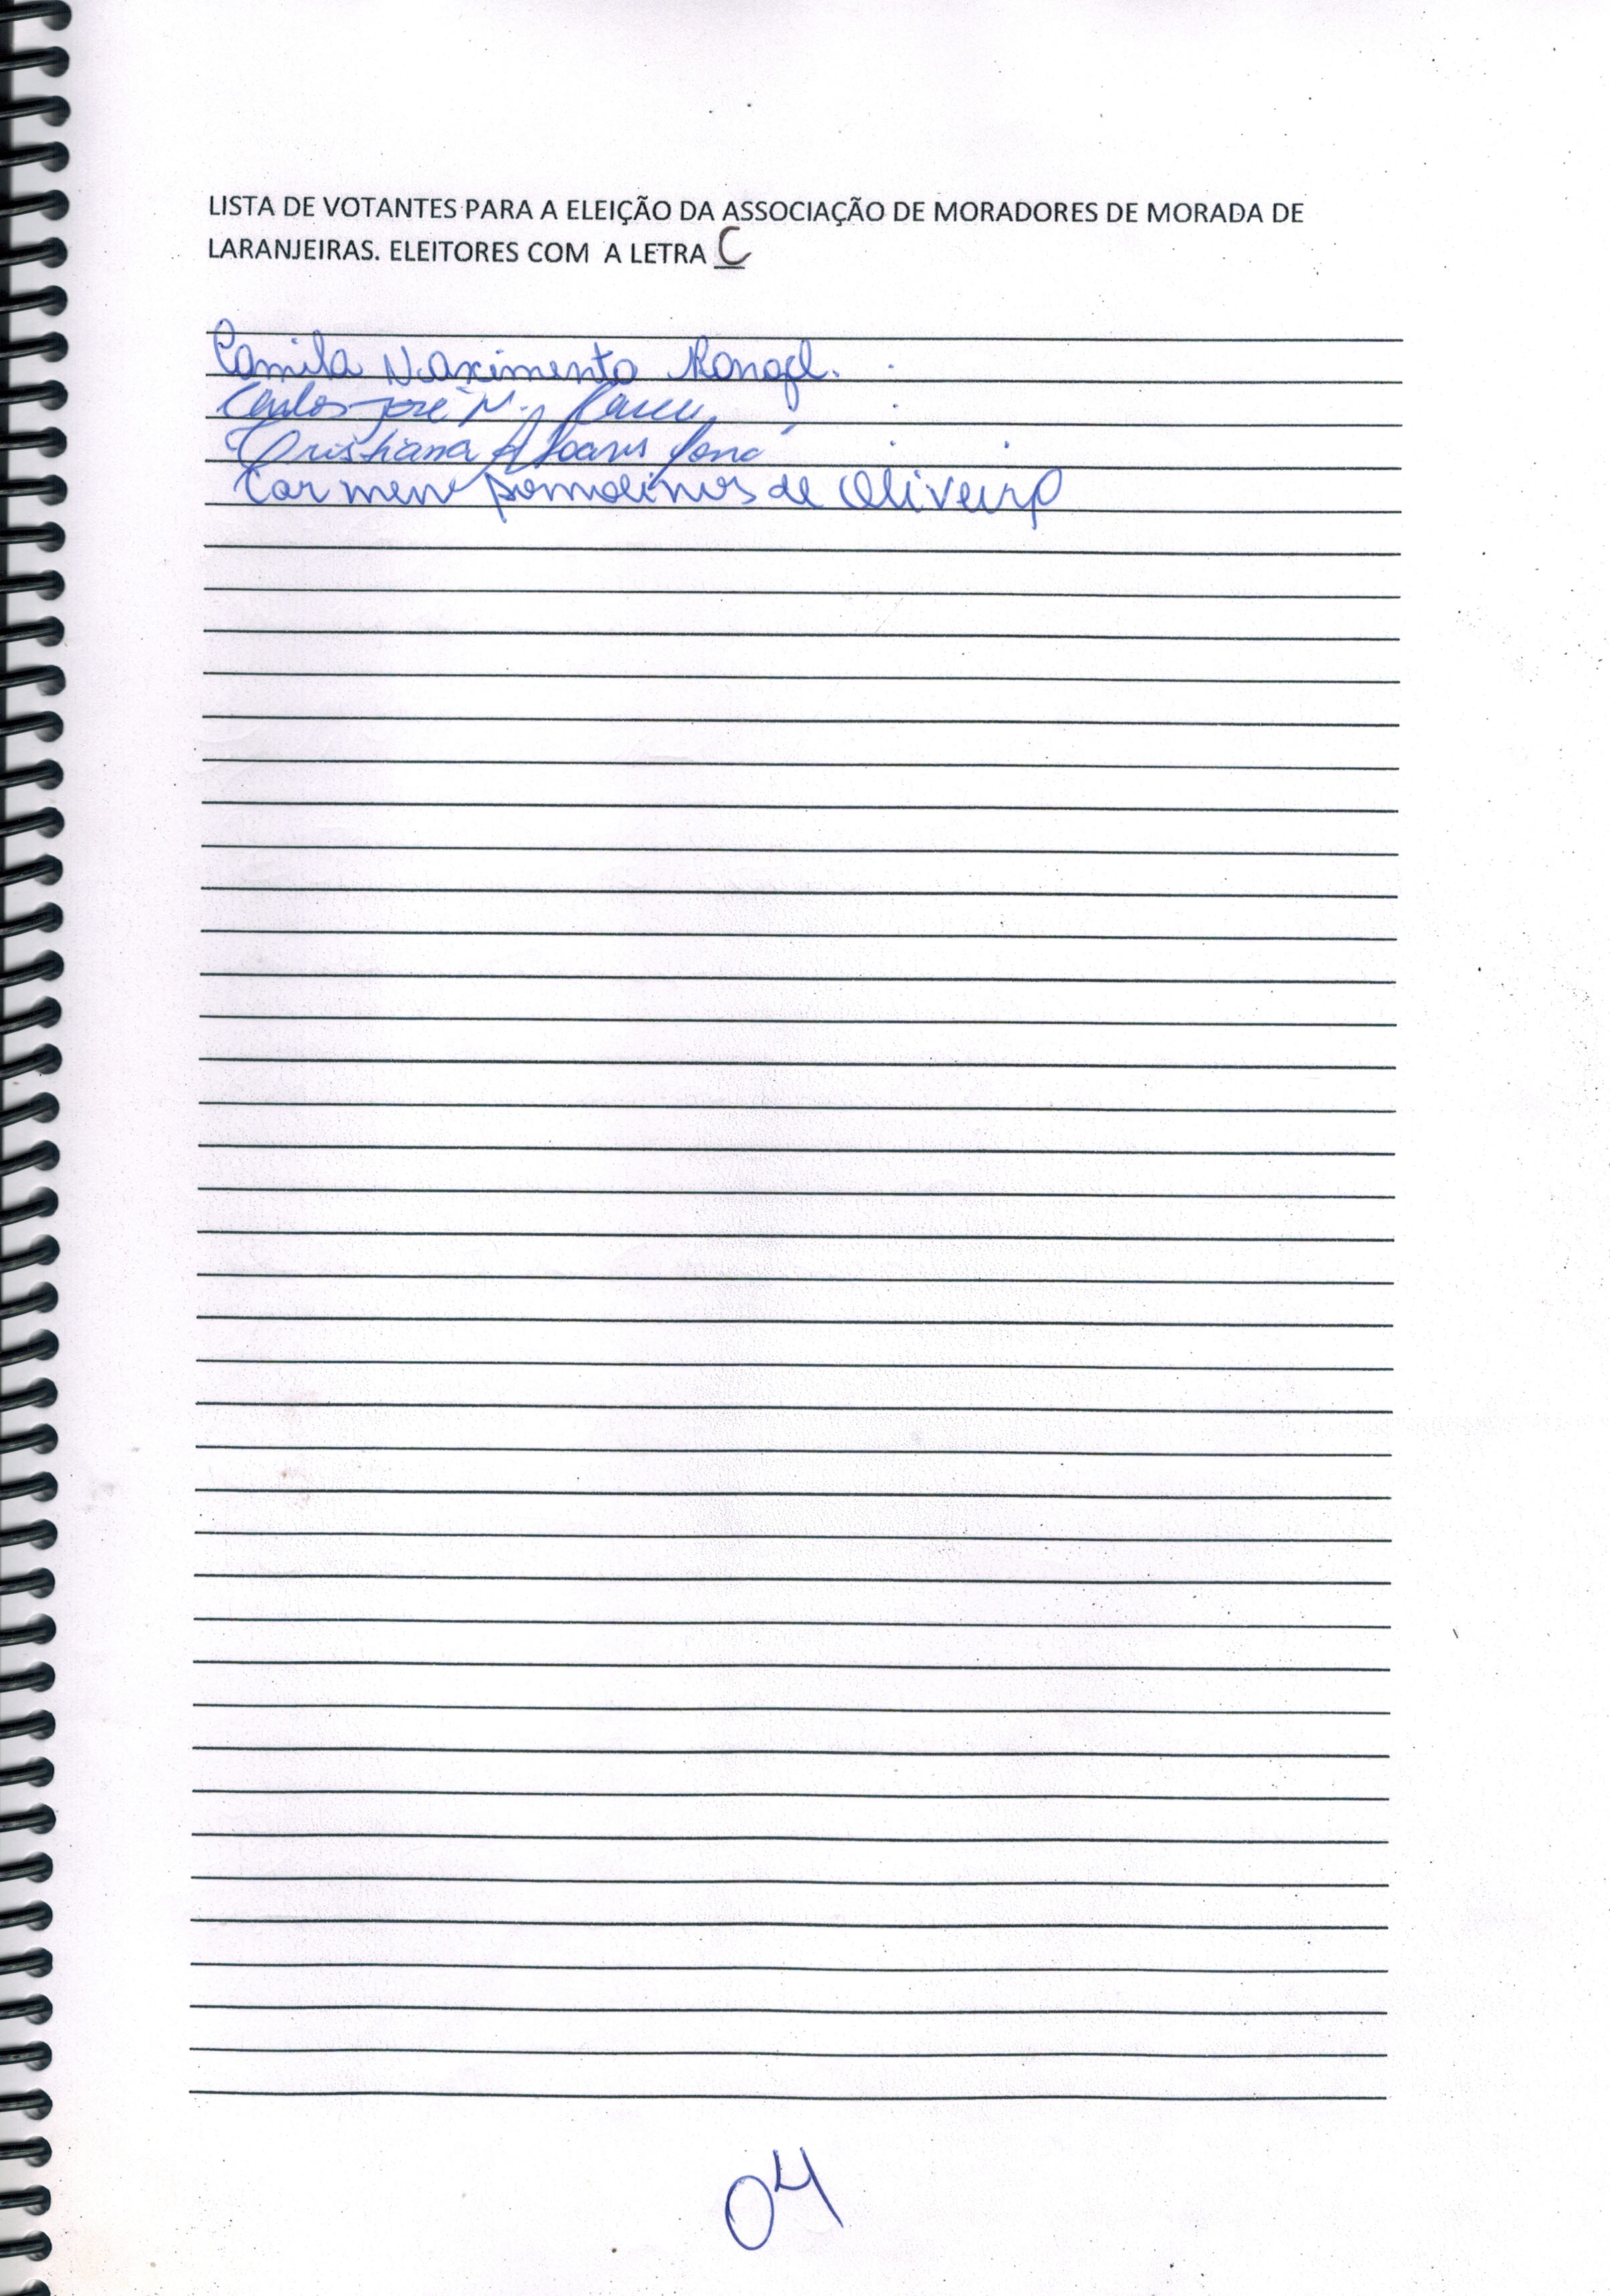 LISTA DE VOTANTES PARA A ELEIÇÃO DA ASSOCIAÇÃO DE MORADORES DE MORADA DE
LARANJEIRAS. ELEITORES COM A LETRA C
Camila Nascimento
Carlos José N.
Cristiana A Soares
Carmem de Oliveira
04